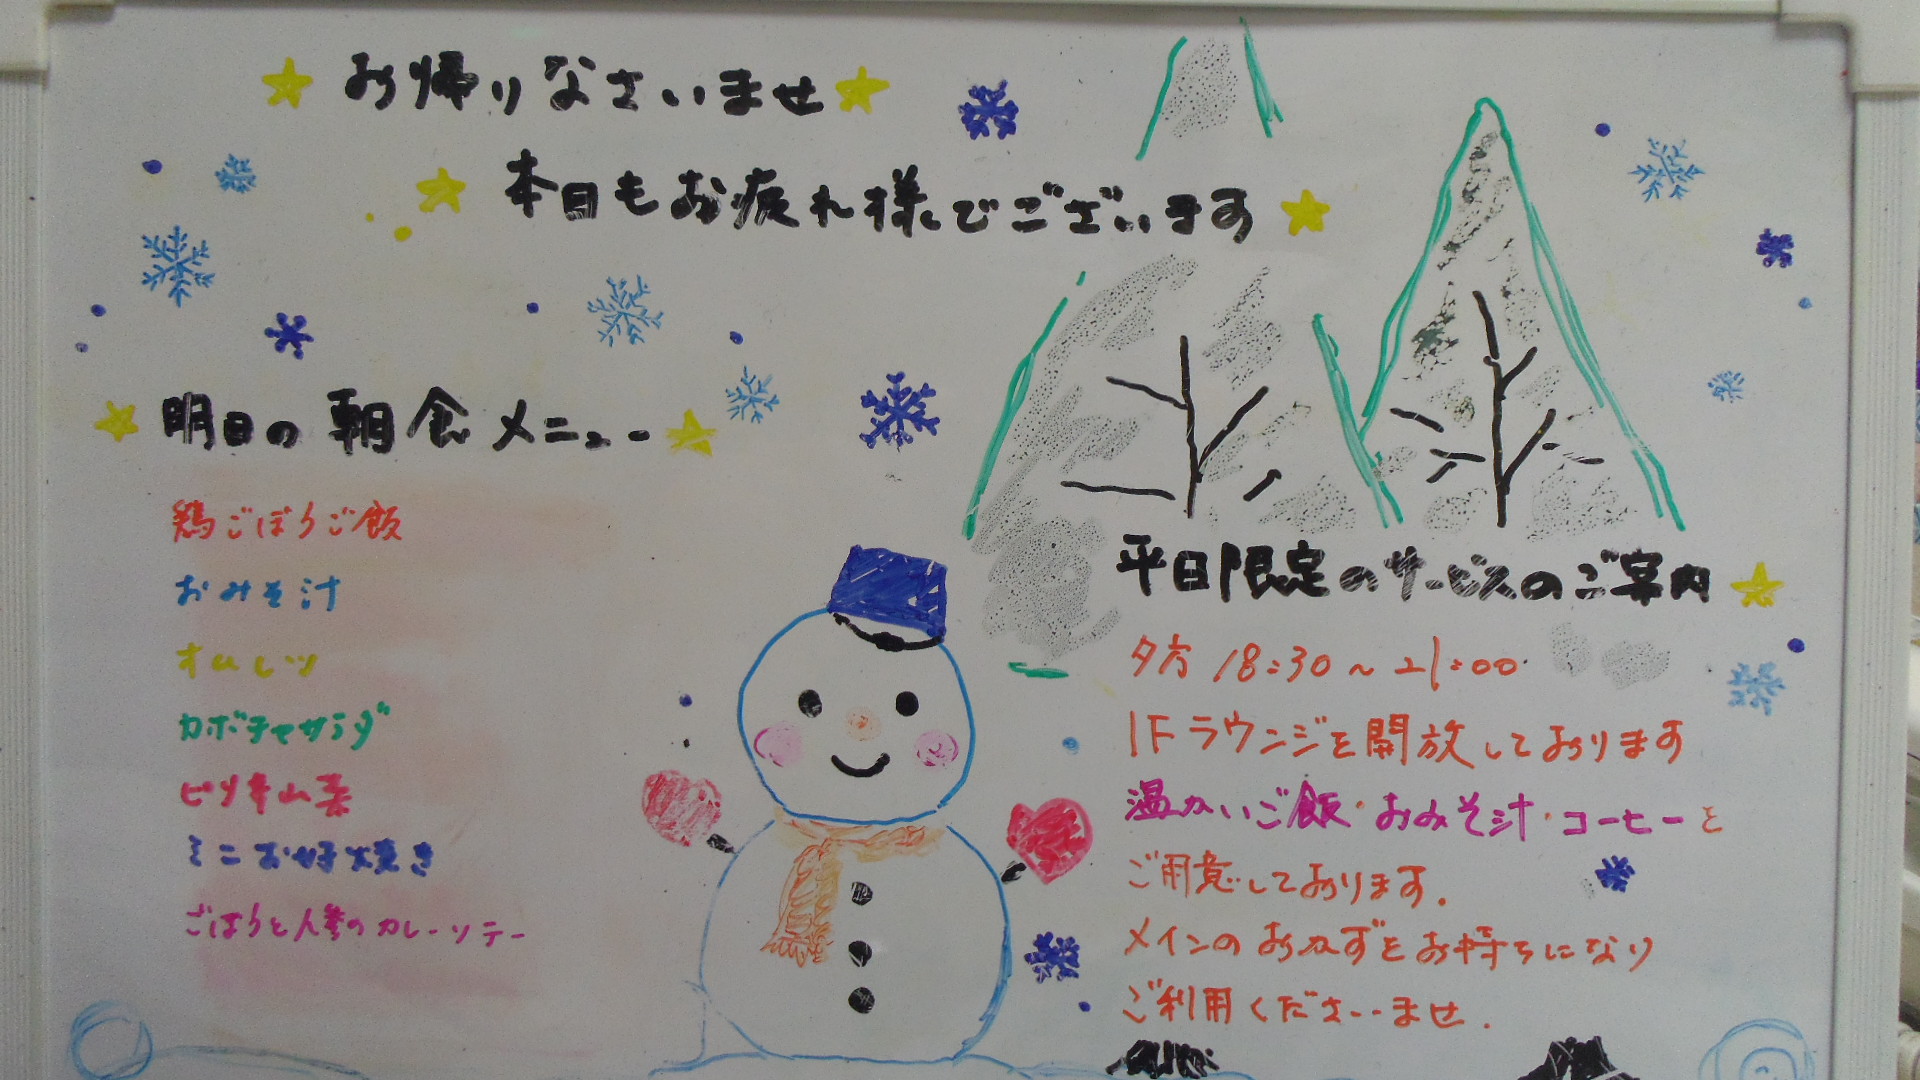 お帰りなさいませ
本日もお疲れ様でございます
明日の朝食メニュー
鶏ごぼうご飯
おみそ汁
オムレツ
カボチャサラダ
ピリ辛山菜
ミニお好焼き
ごぼうと人参のカレーソテー
平日限定のサービスのご案内
夕方 18:30～21:00
1Fラウンジを開放しております
温かいご飯・おみそ汁・コーヒーと
ご用意しております.
メインのおかずをお持ちになり
ご利用くださいませ.